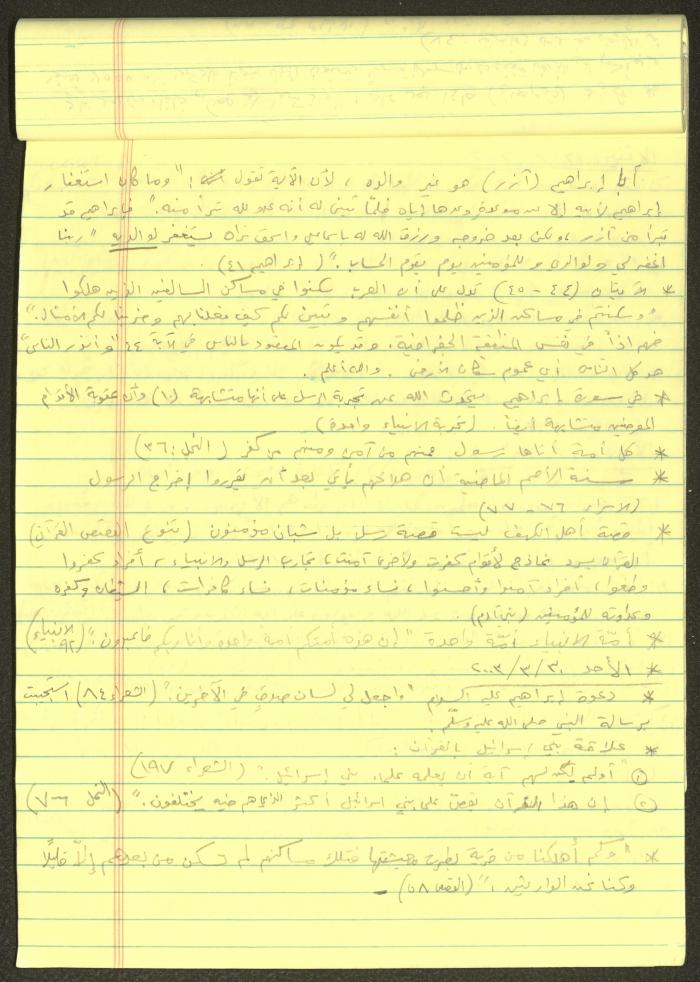 أبا إبراهيم (آزر) هو غير والده ، لأن الآية تقول : "وما كان استغفار
إبراهيم لأبيه إلا عن موعدة وعدها إياه فلمّا تبيّن له أنه عدو لله تبرأ منه." فإبراهيم قد
تبرأ من آزر ، ولكن بعد خروجه ورزق الله له باسماعيل واسحق نراه يستغفر لوالديه "ربنا
اغفر لي ولوالدي وللمؤمنين يوم يقوم الحساب." (إبراهيم ٤١).
* الآيتان (٤٤-٤٥) تدل على أن العرب سكنوا في مساكن السالفين الذين هلكوا
"وسكنتم في مساكن الذين ظلموا أنفسهم وتبين لكم كيف فعلنا بهم وضربنا لكم الأمثال."
فهم اذاً في نفس المنطقة الجغرافية. وقد يكون المقصود بالناس في الآية ٤٤ "وأنذر الناس"
هو كل الناس أي عموم سكان الأرض. والله أعلم.
* في سورة إبراهيم يتحدث الله عن تجربة الرسل على أنها متشابهة (١٠) وأن عقوبة الأقوام
المعرضين متشابهة أيضاً. (تجربة الأنبياء واحدة)
* كل أمة أتاها رسول فمنهم من آمن ومنهم من كفر (النحل: ٣٦)
* سنة الأمم الماضية أن هلاكهم يأتي بعد أن يقرروا إخراج الرسول
(الاسراء ٧٦-٧٧)
* قصة أهل الكهف ليست قصة رسل بل شبان مؤمنون (تنوع القصص القرآني)
القرآن يسرد نماذج لأقوام كفرت وأخرى آمنت، تجارب الرسل والأنبياء، أفراد كفروا
وطغوا، أفراد آمنوا وأحسنوا، نساء مؤمنات، نساء كافرات، الشيطان وكفره
وعداوته للمؤمنين (بني آدم).
* أمّة الأنبياء أمّة واحدة "إن هذه أمتكم أمة واحدة وأنا ربكم فاعبدون." (الأنبياء ٩٢)
* الأحد ٢٠٠٣/٣/٣٠
* دعوة إبراهيم عليه السلام "واجعل لي لسان صدق في الآخرين." (الشعراء ٨٤) استجيبت
برسالة النبي صلى الله عليه وسلّم.
* علاقة بني إسرائيل بالقرآن :
① "أولم يكن لهم آية أن يعلمه علماء بني إسرائيل." (الشعراء ١٩٧)
② إن هذا القرآن يقصّ على بني اسرائيل أكثر الذي هم فيه يختلفون." (النمل ٧٦)
* "وكم أهلكنا من قرية بطرت معيشتها فتلك مساكنهم لم تسكن من بعدهم إلاّ قليلاً
وكنا نحن الوارثين." (القصص ٥٨) -